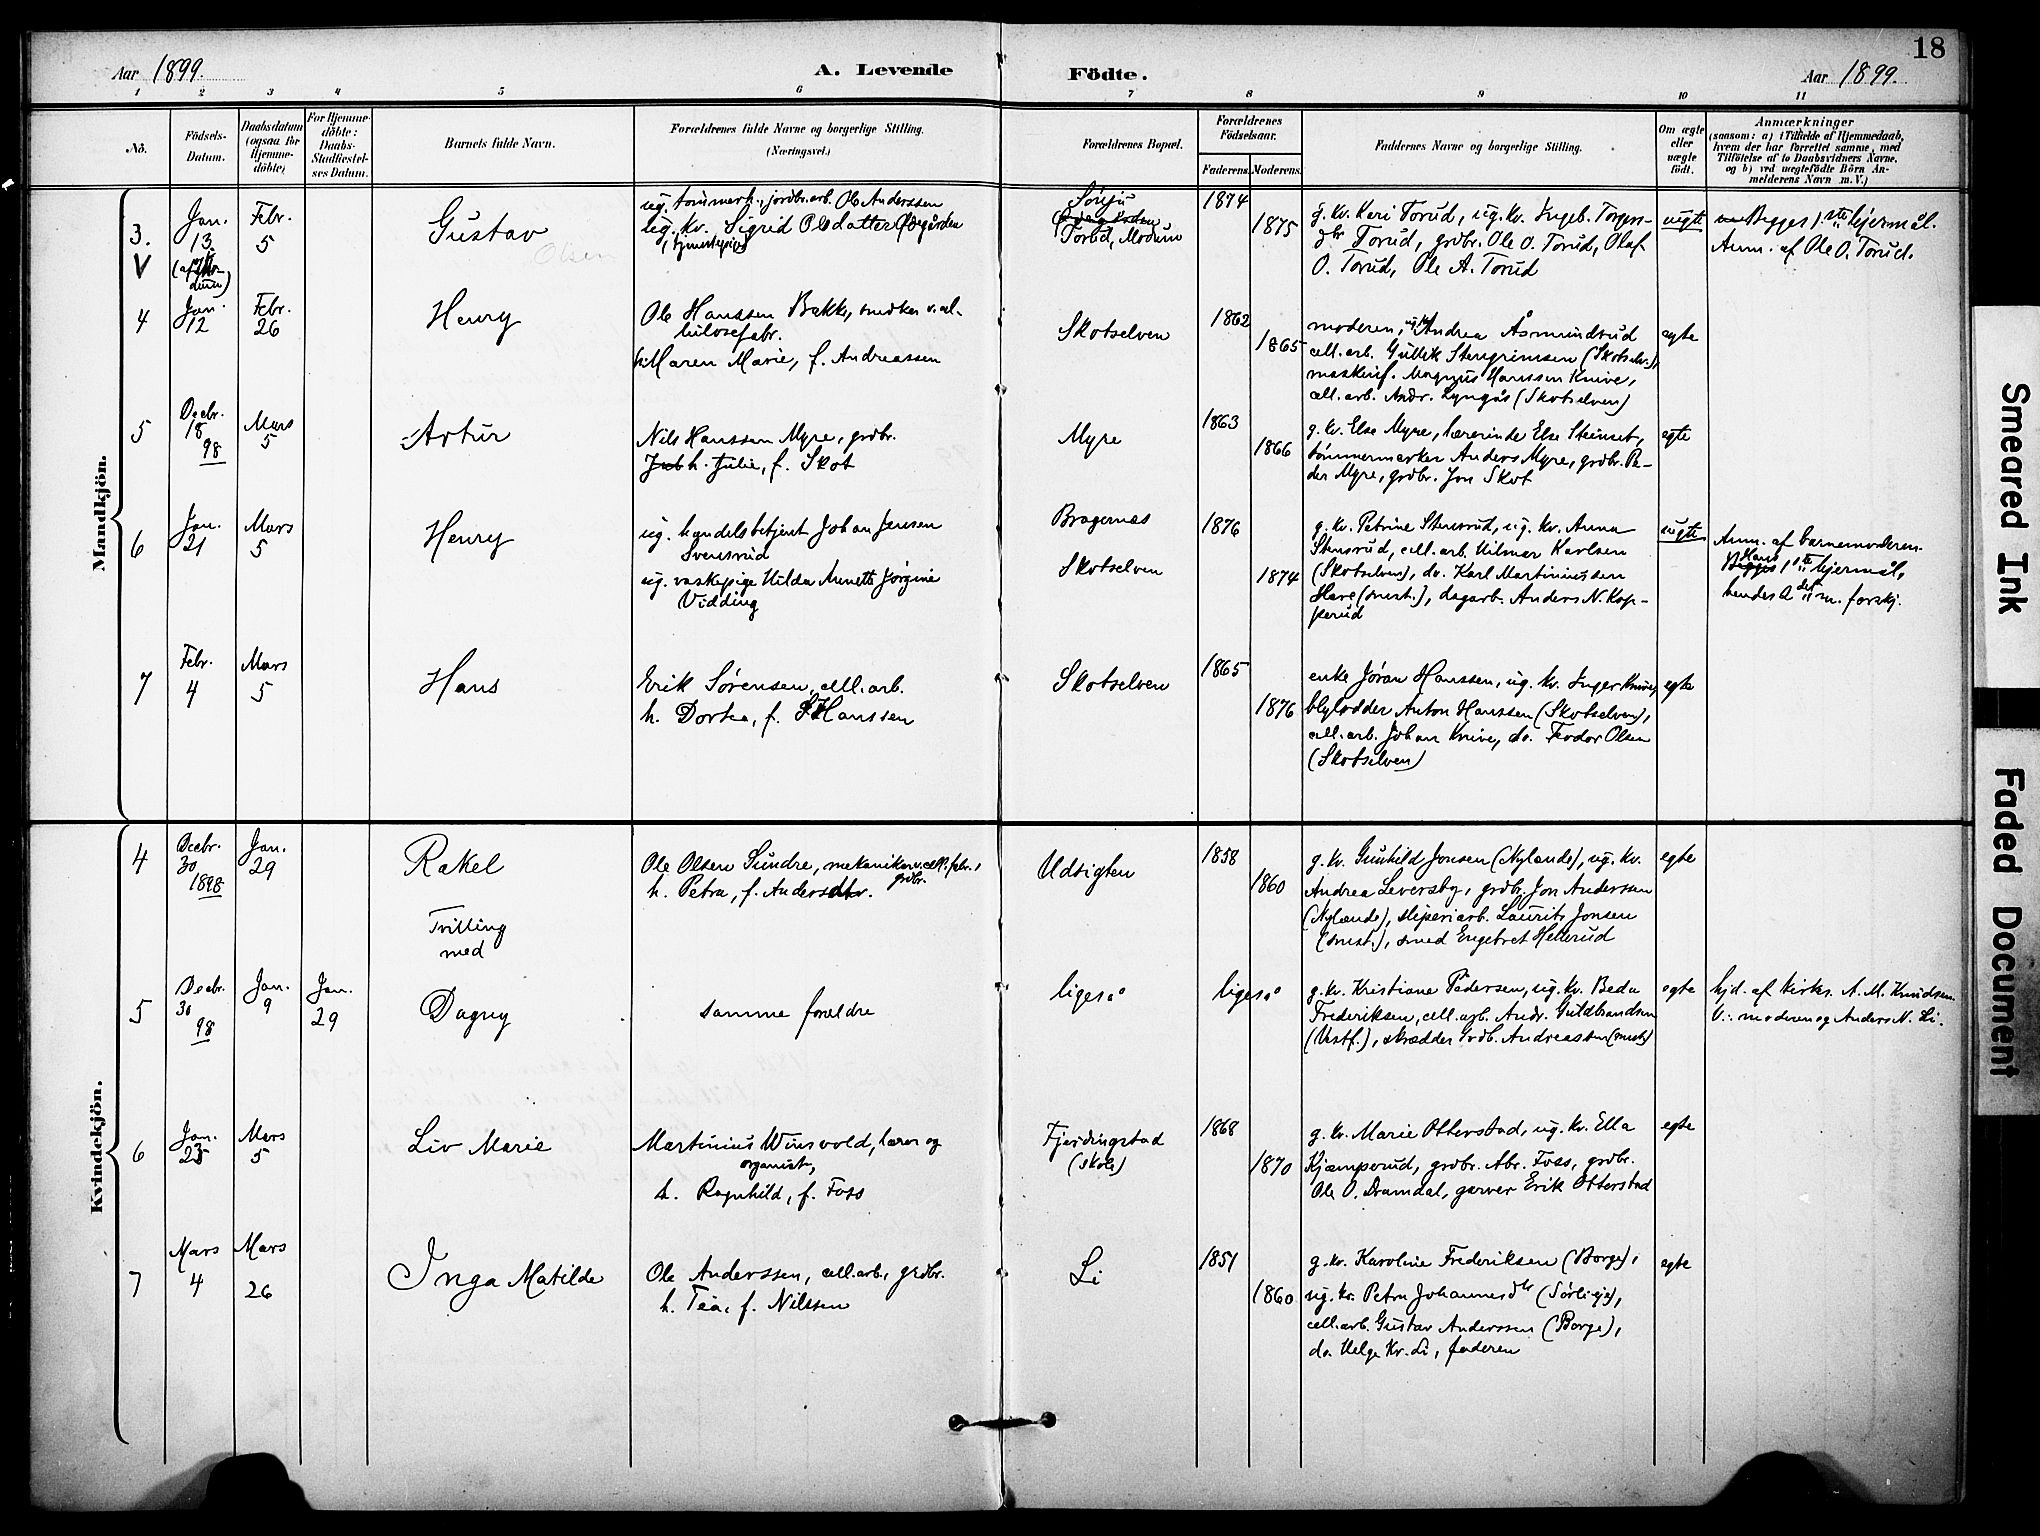 18
Aar 1899.
A. Levende
Födte.
Aar 1899.
1 2 3 4 5 6 7 8 9 10 11
No.
Födsels-
Datum.
Daabsdatum
(ogsaa for
Hjemme-
döbte)
For Hjemme-
döbte:
Daabs-
Stadfæstel-
ses Datum.
Barnets fulde Navn.
Forældrenes fulde Navne og borgerlige Stilling.
(Næringsvei.)
Forældrenes Bopæl.
Forældrenes
Födselsaar.
Faderens. Moderens.
Faddernes Navne og borgerlige Stilling.
Om ægte
eller
uægte
födt.
Anmærkninger
(saasom: a) i Tilfælde af Hjemmedaab,
hvem der har forrettet samme, med
Tilföielse af to Daabsvidners Navne,
og b) ved uegtefödte Börn An-
melderens Navn m. V.)
Mandkjön.
3.
V
Jan.
13
Febr.
5
Gustav
Olsen
ug. tømmerh., jordbr.arb. Ole Anderssen
ug. kv. Sigrid Olsdatter Ødegården
(tjenestepige)
Sønju
Torud, Modum
1874
1875
g. kv. Kari Torud, ug. kv. Ingeb. Torgers-
dtr Torud, grdbr. Ole O. Torud, Olaf
O. Torud, Ole A. Torud
uegte
Begges 1ste hjermål.
Anm. af Ole O. Torud.
4
Jan.
12
Febr.
26
Henry
Ole Hanssen Bakke, snedker v. cel-
lulosefabr.
h. Maren Marie, f. Andreassen
Skotselven
1862
1865
moderen, ug. kv. Andrea Åsmundrud
cell. arb. Gullik Stengrimsen (Skotselv.),
maskinf. Magnus Hanssen Knive,
cell. arb. Andr. Lyngås (Skotselven)
egte
5
Decbr.
18
98
Mars
5
Artur
Nils Hanssen Myre, grdbr.
h. Julie, f. Skot
Myre
1863
1866
g. kv. Else Myre, lærerinde Else Steinset,
tømmermerker Anders Myre, grdbr. Pe-
der Myre, grdbr. Jon Skot
egte
6
Jan.
21
Mars
5
Henry
ug. handelsbetjent Johan Jensen
Svensrud
ug. vaskepige Hilda Annette Jørgine
Vidding
Bragernes
Skotselven
1876
1874
g. kv. Petrine Stensrud, ug. kv. Anna
Stensrud, cell. arb. Hilmar Karlsen
(Skotselven), do. Karl Martiniussen
Hare (smst.), dagarb. Anders N. Kop-
perud
uegte
Anm. af barnemoderen.
Hans
Begges 1ste hjermål,
hendes 2det m. forskj.
7
Febr.
4
Mars
5
Hans
Erik Sørensen, cell. arb.
h. Dortea, f. Hanssen
Skotselven
1865
1876
enke Jøran Hanssen, ug. kv. Inger Knive,
blylodder Anton Hanssen (Skotselven),
cell. arb. Johan Knive, do. Teodor Olsen
(Skotselven)
egte
Kvindekjön.
4
Decbr.
30
1898
Jan.
29
Rakel
Tvilling
med
Ole Olsen Sundre, mekaniker v. cell. fabr.,
grdbr.
h. Petra, f. Andersdtr.
Udsigten
1858
1860
g. kv. Gunhild Jonsen (Nylænde), ug. kv.
Andrea Leversby, grdbr. Jon Anderssen
(Nylænde), sliperiarb. Laurits Jonsen
(smst.), smed Engebret Hellerud
egte
5
Decbr.
30
98
Jan.
9
Jan.
29
Dagny
samme foreldre
ligeså
ligeså
g. kv. Kristiane Pedersen, ug. kv. Beda
Frederiksen, cell. arb. Andr. Guldbrandsen
(Vestf.), skrædder Grdb. Andreassen (smst.)
egte
hjd. af kirkes. A. M. Knudsen.
V: moderen og Anders N. Li.
6
Jan.
23
Mars
5
Liv Marie
Martinius Winsvold, lærer og
organist,
h. Ragnhild, f. Foss
Fjerdingstad
(skole)
1868
1870
g. kv. Marie Otterstad, ug. kv. Ella
Kjæmperud, grdbr. Abr. Foss, grdbr.
Ole O. Dramdal, garver Erik Otterstad
egte
7
Mars
4
Mars
26
Inga Matilde
Ole Anderssen, cell. arb., grdbr.
h. Tea, f. Nilssen
Li
1851
1860
g. kv. Karoline Frederiksen (Borge),
ug. kv. Petra Johannesdtr (Sørlieje),
cell. arb. Gustav Anderssen (Borge),
do. Helge Kr. Li, faderen
egte
Smeared Ink
Faded Document